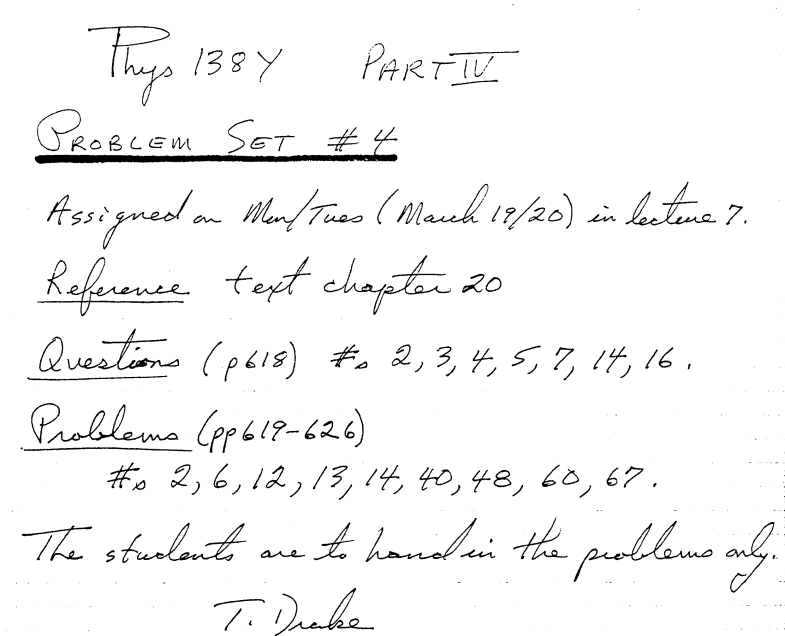 Phys 138Y PART IV
PROBLEM SET # 4
Assigned on Mon/Tues (March 19/20) in lecture 7.
Reference text chapter 20
Questions (p618) #s 2, 3, 4, 5, 7, 14, 16.
Problems (pp619-626)
#s 2, 6, 12, 13, 14, 40, 48, 60, 67.
The students are to hand in the problems only.
T. Drake